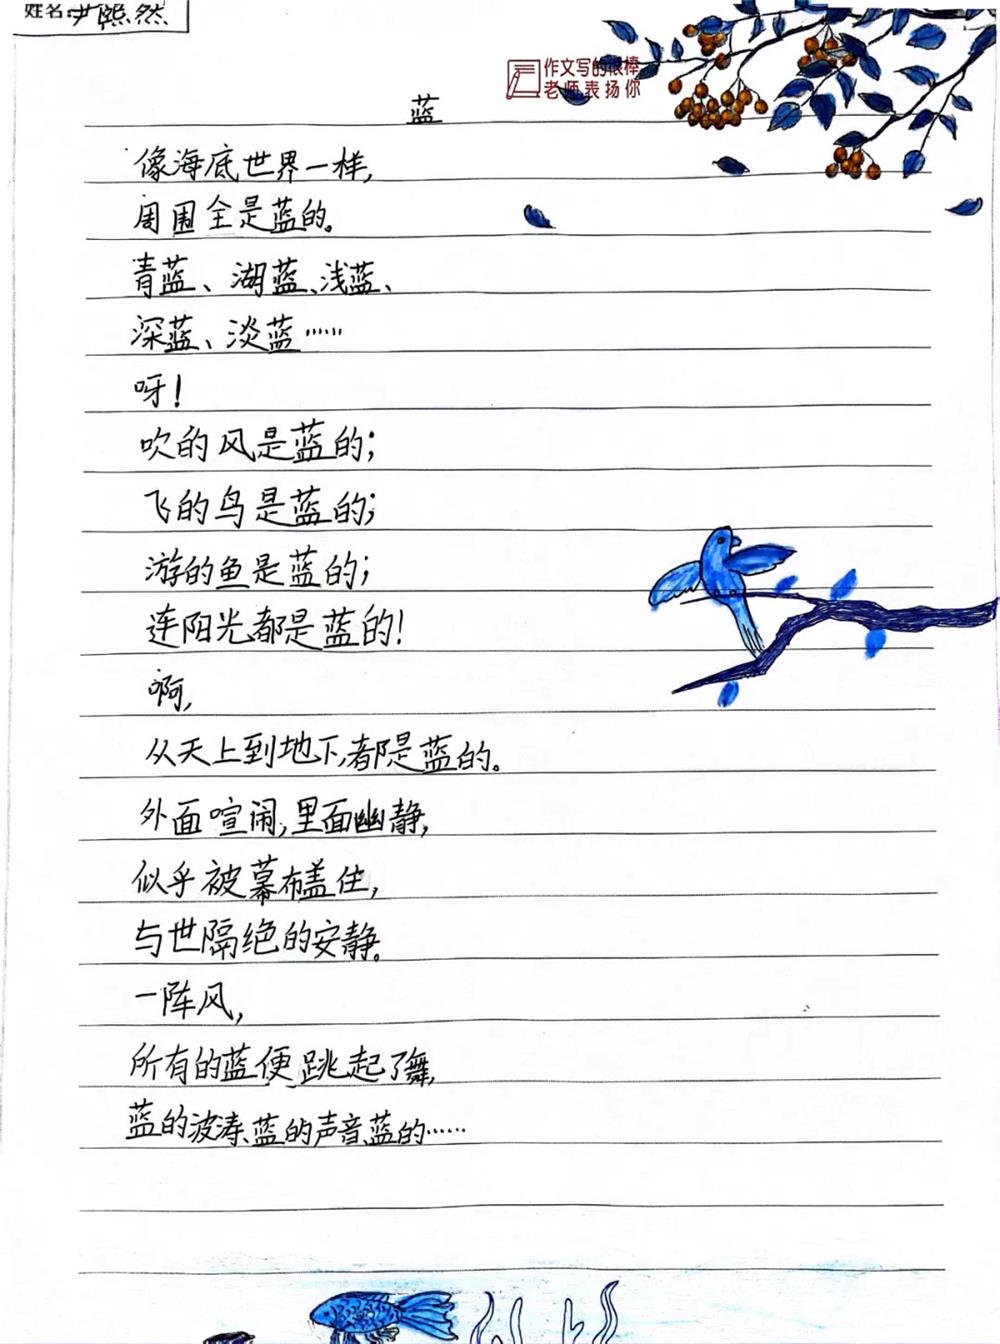 姓名:尹熙然
作文写的很棒
老师表扬你
蓝
像海底世界一样,
周围全是蓝的。
青蓝、湖蓝、浅蓝、
深蓝、淡蓝……
呀!
吹的风是蓝的;
飞的鸟是蓝的;
游的鱼是蓝的;
连阳光都是蓝的!
啊,
从天上到地下,都是蓝的。
外面喧闹,里面幽静,
似乎被幕布盖住,
与世隔绝的安静。
一阵风,
所有的蓝便跳起了舞,
蓝的波涛、蓝的声音、蓝的……